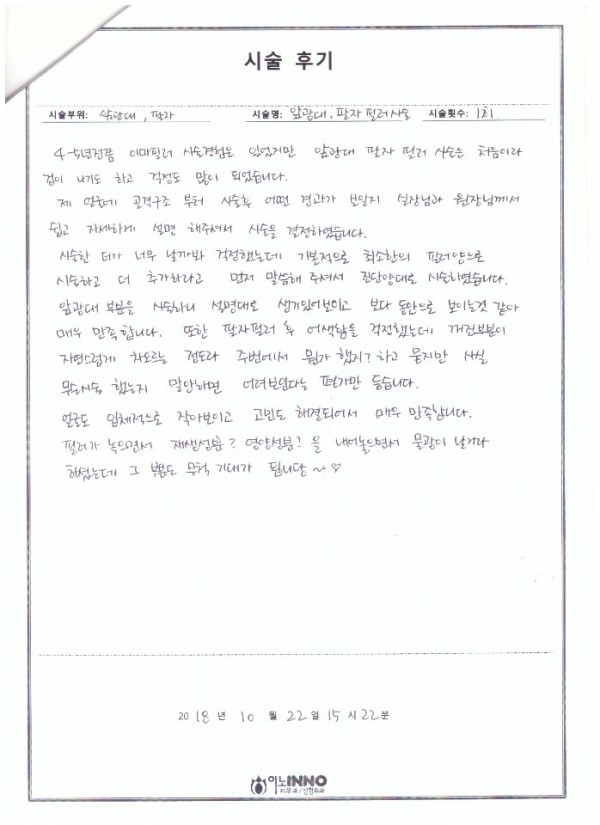 시술 후기
시술부위: 앞광대, 팔자 시술명: 앞광대, 팔자 필러시술 시술횟수: 1회
4-5년전쯤 이마필러 시술경험은 있었지만 앞광대 팔자 필러 시술은 처음이라
겁이 나기도 하고 걱정도 많이 되었습니다.
제 얼굴에 골격구조 부터 시술후 어떤 결과가 보일지 실장님과 원장님께서
쉽고 자세하게 설명 해주셔서 시술을 결정하였습니다.
시술한 티가 너무 날까봐 걱정했는데 기본적으로 최소한의 필러양으로
시술하고 더 추가하라고 먼저 말씀해 주셔서 진단양대로 시술하였습니다.
앞광대 부분을 시술하니 설명대로 생기있어보이고 보다 동안으로 보이는것 같아
매우 만족합니다. 또한 팔자필러 후 어색함을 걱정했는데 꺼진부분이
자연스럽게 차오르는 정도라 주변에서 뭔가 했지? 하고 묻지만 사실
무슨시술 했는지 말안하면 어려보인다는 평가만 듣습니다.
얼굴도 입체적으로 작아보이고 고민도 해결되어서 매우 만족합니다.
필러가 녹으면서 재생성분? 영양성분? 을 내어놓으면서 물광이 날거라
하셨는데 그 부분도 무척 기대가 됩니당~♡
2018년 10월 22일 15시 22분
이노INNO
피부과/성형외과